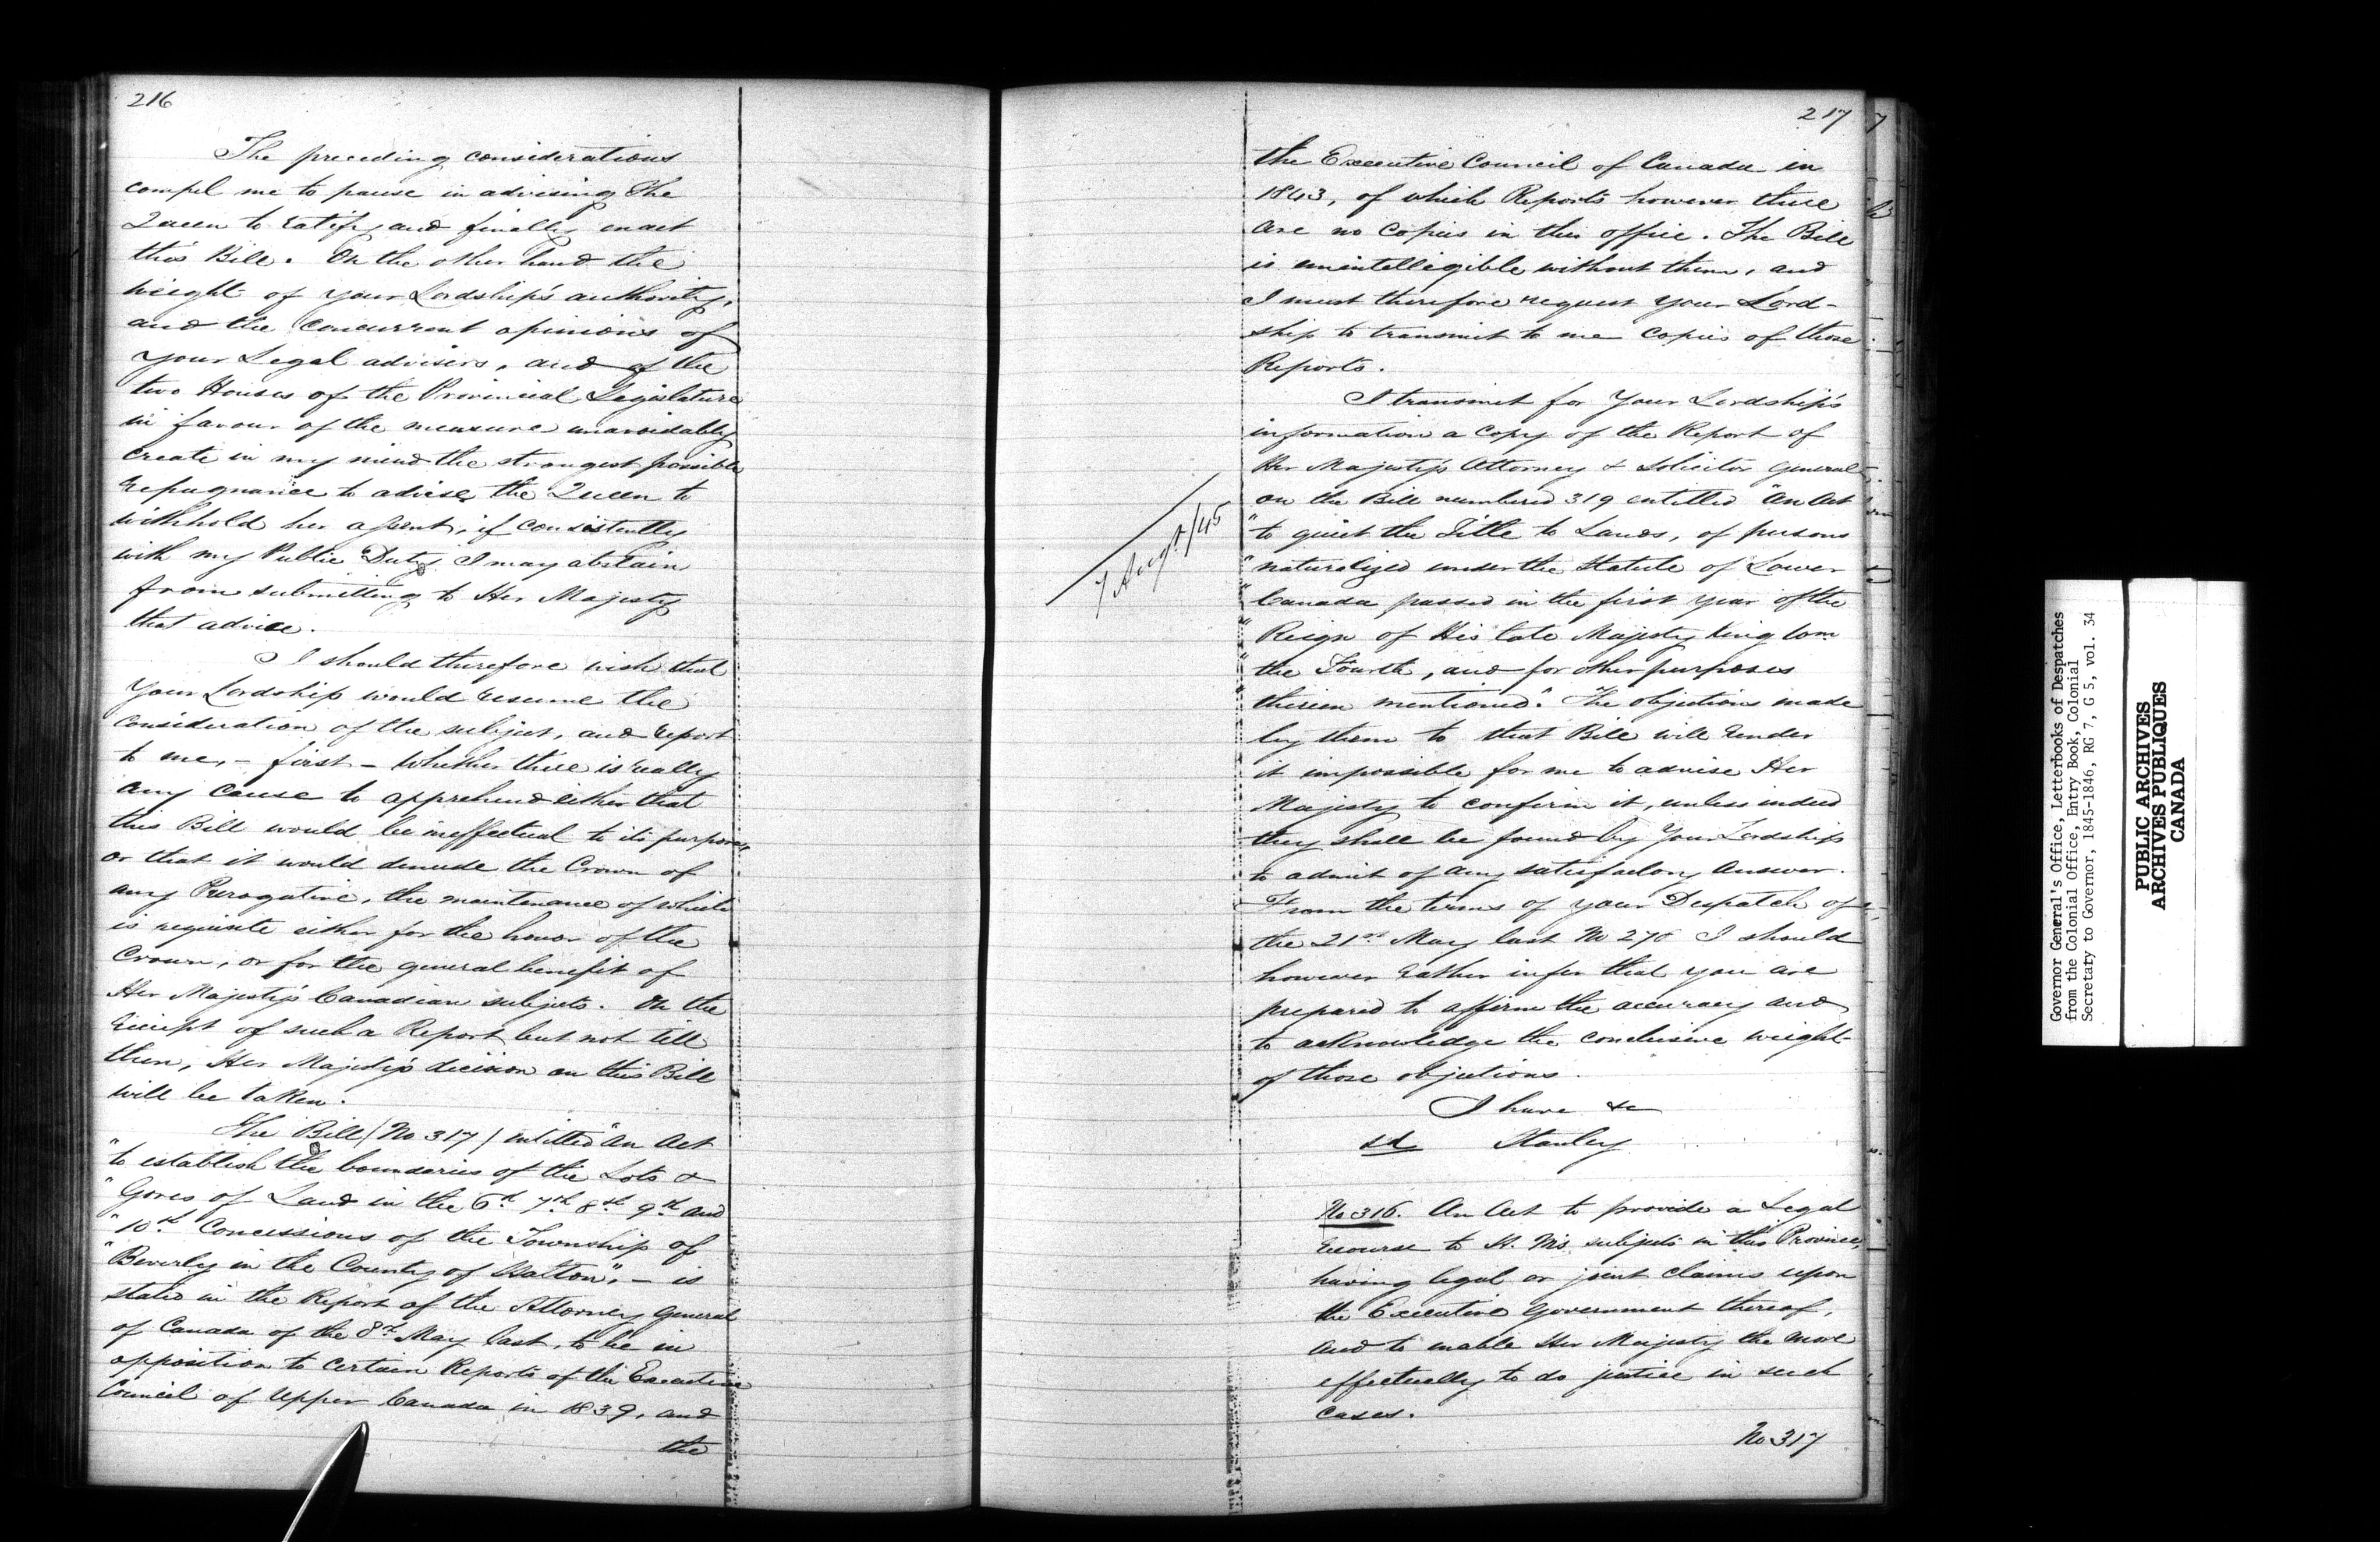 216
The preceding considerations
compel me to pause in advising the
Queen to ratify and finally enact
this Bill. On the other hand the
weight of your Lordship's authority,
and the concurrent opinions of
your Legal advisers, and of the
two Houses of the Provincial Legislature
in favour of the measure unavoidably
create in my mind the strongest possible
repugnance to advise the Queen to
withhold her assent, if consistently
with my Public Duty I may abstain
from submitting to Her Majesty
that advice.
I should therefore wish that
Your Lordship would resume the
consideration of the subject, and report
to me, - first - whether there is really
any cause to apprehend either that
this Bill would be ineffectual to its purpose,
or that it would denude the Crown of
any Prerogative, the maintenance of which
is requisite either for the honor of the
Crown, or for the general benefit of
Her Majesty's Canadian subjects. On the
receipt of such a Report but not till
then, Her Majesty's decision on this Bill
will be taken.
The Bill (No 317) intitled "An Act
"to establish the boundaries of the Lots &
"Gores of Land in the 6th 7th 8th 9th and
"10th Concessions of the Township of
"Beverly in the County of Halton", - is
stated in the Report of the Attorney General
of Canada of the 8th May last, to be in
opposition to certain Reports of the Executive
Council of Upper Canada in 1839, and
the
217
the Executive Council of Canada in
1843, of which Reports however there
are no Copies in this office. The Bill
is unintelligible without them, and
I must therefore request your Lord-
ship to transmit to me Copies of those
Reports.
I transmit for Your Lordship's
information a Copy of the Report of
Her Majesty's Attorney & Solicitor General
on the Bill numbered 319 entitled "An Act
"to quiet the Title to Lands, of persons
"naturalized under the Statute of Lower
"Canada passed in the first year of the
"Reign of His late Majesty King Wm
"the Fourth, and for other purposes
therein mentioned." The objections made
by them to that Bill will render
it impossible for me to advise Her
Majesty to confirm it, unless indeed
they shall be found by Your Lordship
to admit of any satisfactory answer.
From the terms of your Despatch of
the 21st May last No 278 I should
however rather infer that you are
prepared to affirm the accuracy and
to acknowledge the conclusive weight
of those objections.
I have &c
sd Stanley
7 Augt/45
No 316. An Act to provide a Legal
recourse to H. M's subjects in this Province,
having legal or joint claims upon
the Executive Government thereof,
and to enable Her Majesty the more
effectually to do justice in such
cases.
No 317
Governor General's Office, Letterbooks of Despatches
from the Colonial Office, Entry Book, Colonial
Secretaty to Governor, 1845-1846, RG 7, G 5, vol. 34
PUBLIC ARCHIVES
ARCHIVES PUBLIQUES
CANADA